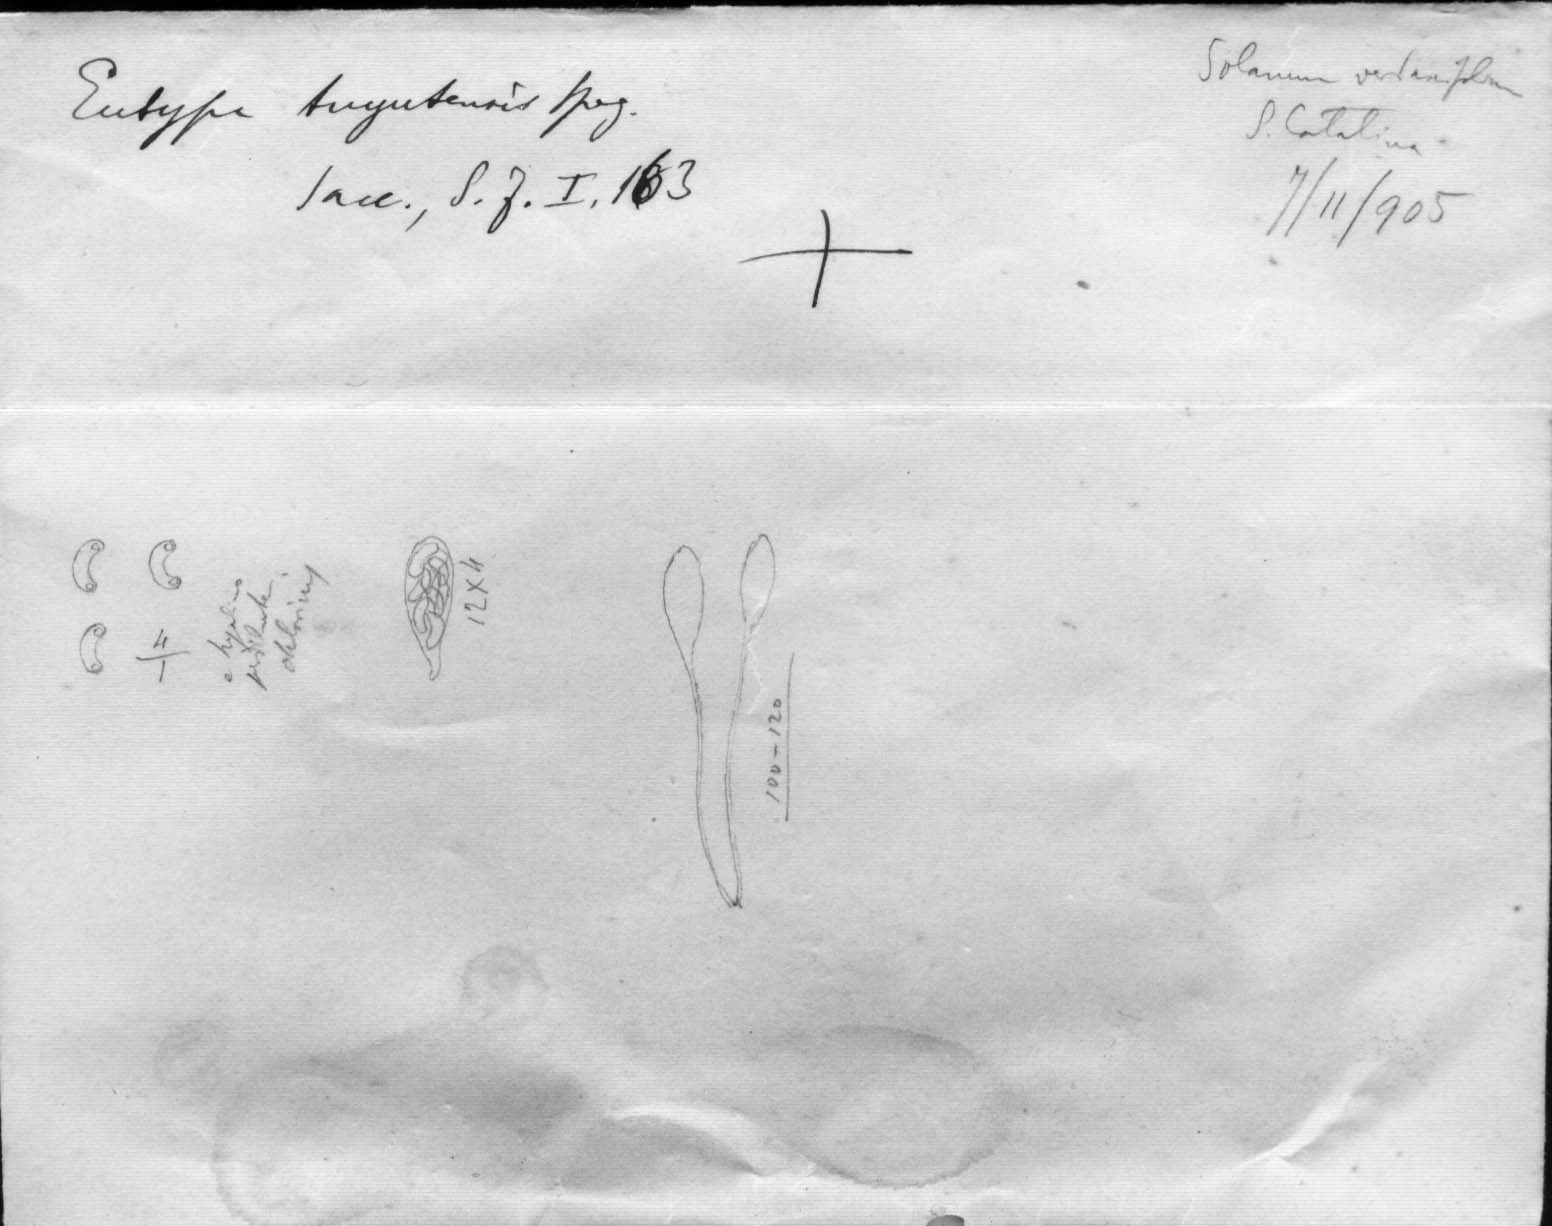 Eutypa tuyutensis Speg.
Sacc., S. f. I. 163
Solanum verbascifolium
S. Catalina
7/11/905
4
1
e hyalino
chlorinis
12x4
100-120